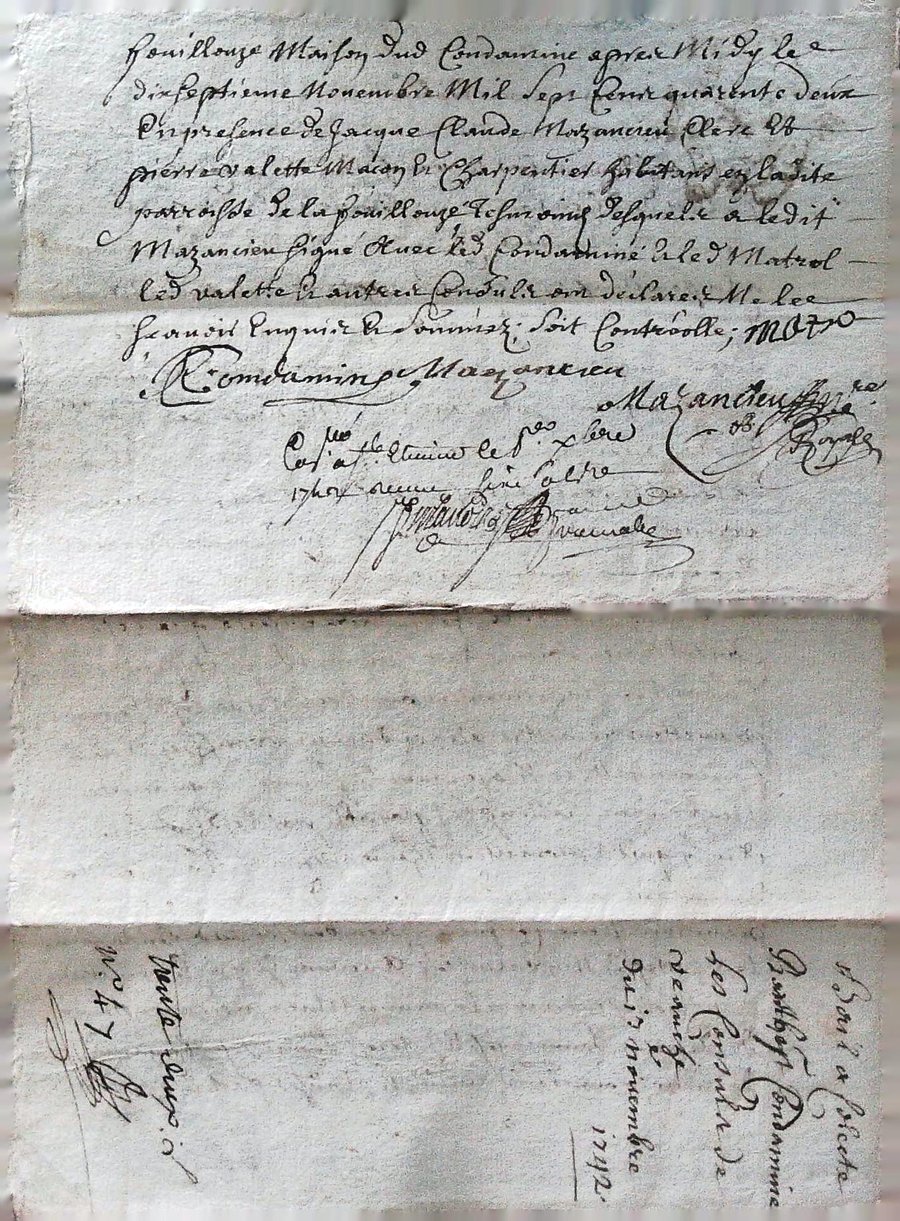 fouillouze Maison dud Condamine apres Midy lee
dixseptieme Novembre Mil Sept Cent quarente deux
En presence de Jacque Claude Mazancieu Clerc Et
pierre valette Macon & Charpentier habitans en ladite
parroisse de la fouillouze Tesmoins desquels a ledit
Mazancieu signé Avec led Condaminé & led Matrol
led valette & autres Consuls ont déclarer Ne lee
scavoir Enquis & Sommez; Soit Controolle;
Condamine Mazancieu
Mazancieu Nre
Royal
a St Etienne le
1742 recu
Bail a Colecte
Barthest Condamine
Les Consuls de
du 17 novembre
1742.
trente deux
No. 47